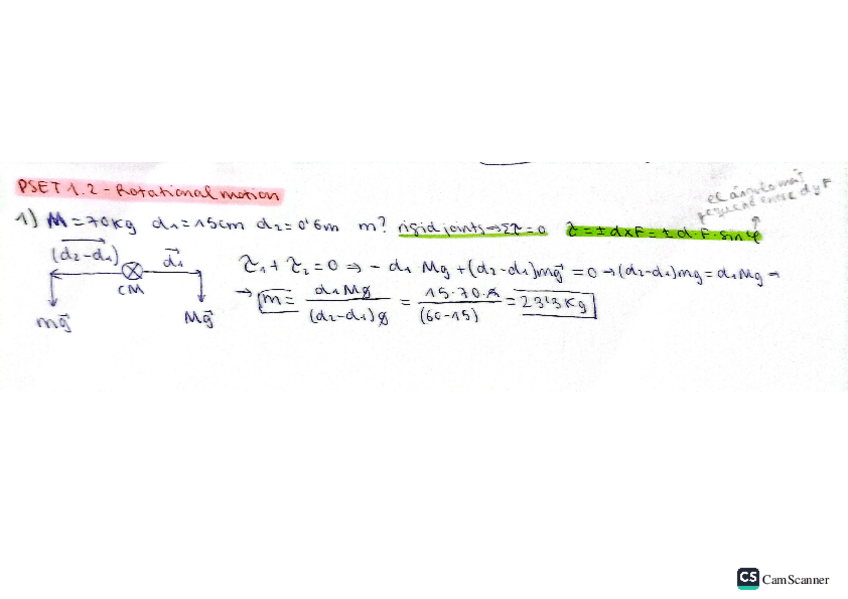 PSET 1.2 - Rotational motion
el ángulo más pequeño entre d y F
1) M = 70kg d₁ = 15cm d₂ = 0'6m m? rigid joints → Στ = 0 τ = ± d × F = ± d · F · sin φ
(d₂-d₁) d₁
CM
mg⃗ Mg⃗
τ₁ + τ₂ = 0 ⇒ - d₁ Mg + (d₂-d₁)mg⃗ = 0 → (d₂-d₁)mg = d₁Mg →
→ m = d₁Mg / (d₂-d₁)g = 15·70·g / (60-15) = 23'3 Kg
CS CamScanner